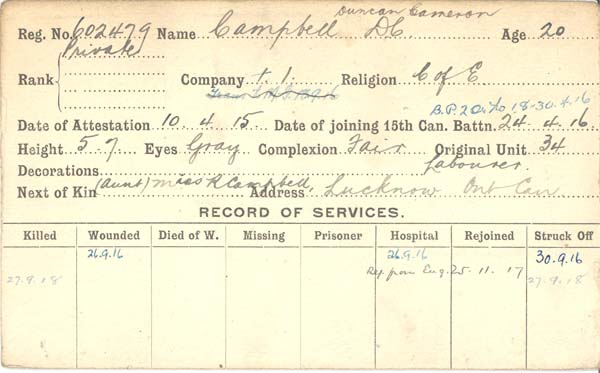 Duncan Cameron
Reg. No. 602479 Name Campbell DC Age 20
Private
Rank Company 1. Religion C of E
B.P.2 18-30.4.16
Date of Attestation 10.4.15 Date of joining 15th Can. Battn. 24.4.16
Height 5 7 Eyes Gray Complexion Fair Original Unit 34
Decorations Labourer
Next of Kin (Aunt) Miss R Campbell, Address Lucknow Ont Can
RECORD OF SERVICES.
Killed Wounded Died of W. Missing Prisoner Hospital Rejoined Struck Off
26.9.16 26.9.16 30.9.16
27.9.18 Rep from Eng. 25.11.17 27.9.18